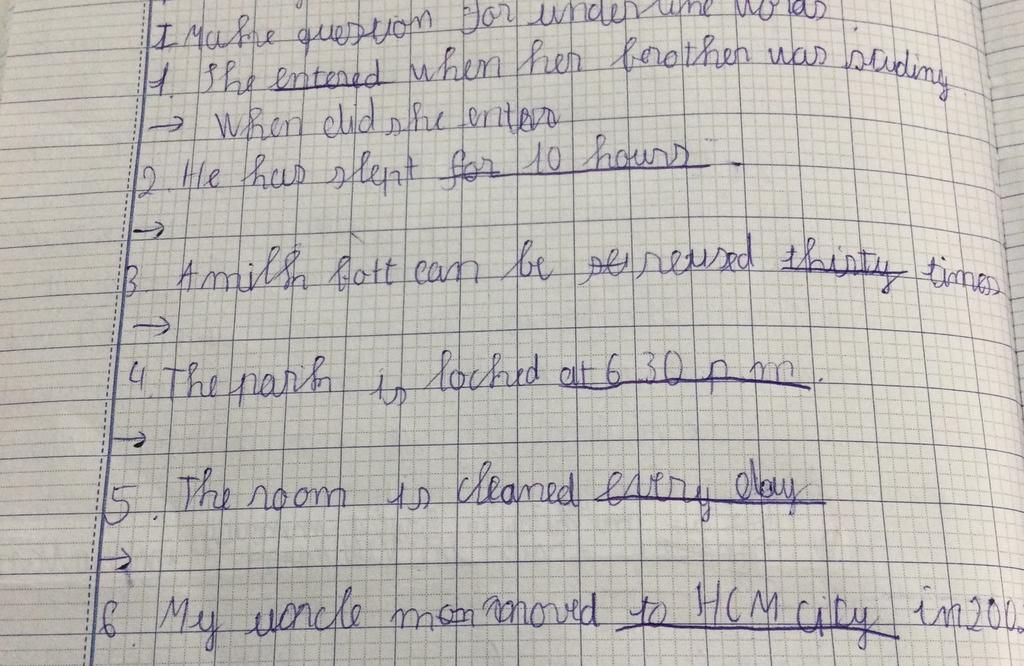 I Make question for underline words
1. She entered when her brother was studing
→ When did she enter
2. He has slept for 10 hours.
→
3 A milk bott can be reused thirty times
→
4. The park is locked at 6 30 p m.
→
5. The room is cleaned every day
→
6. My uncle moved to HCM city in 200